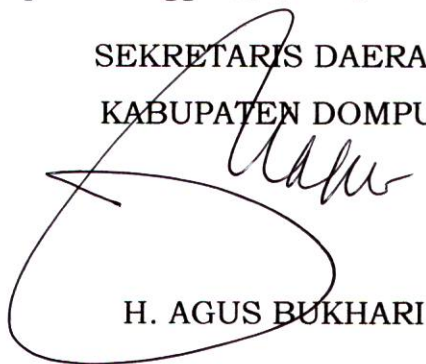 SEKRETARIS DAERA
KABUPATEN DOMPU
H. AGUS BUKHARI